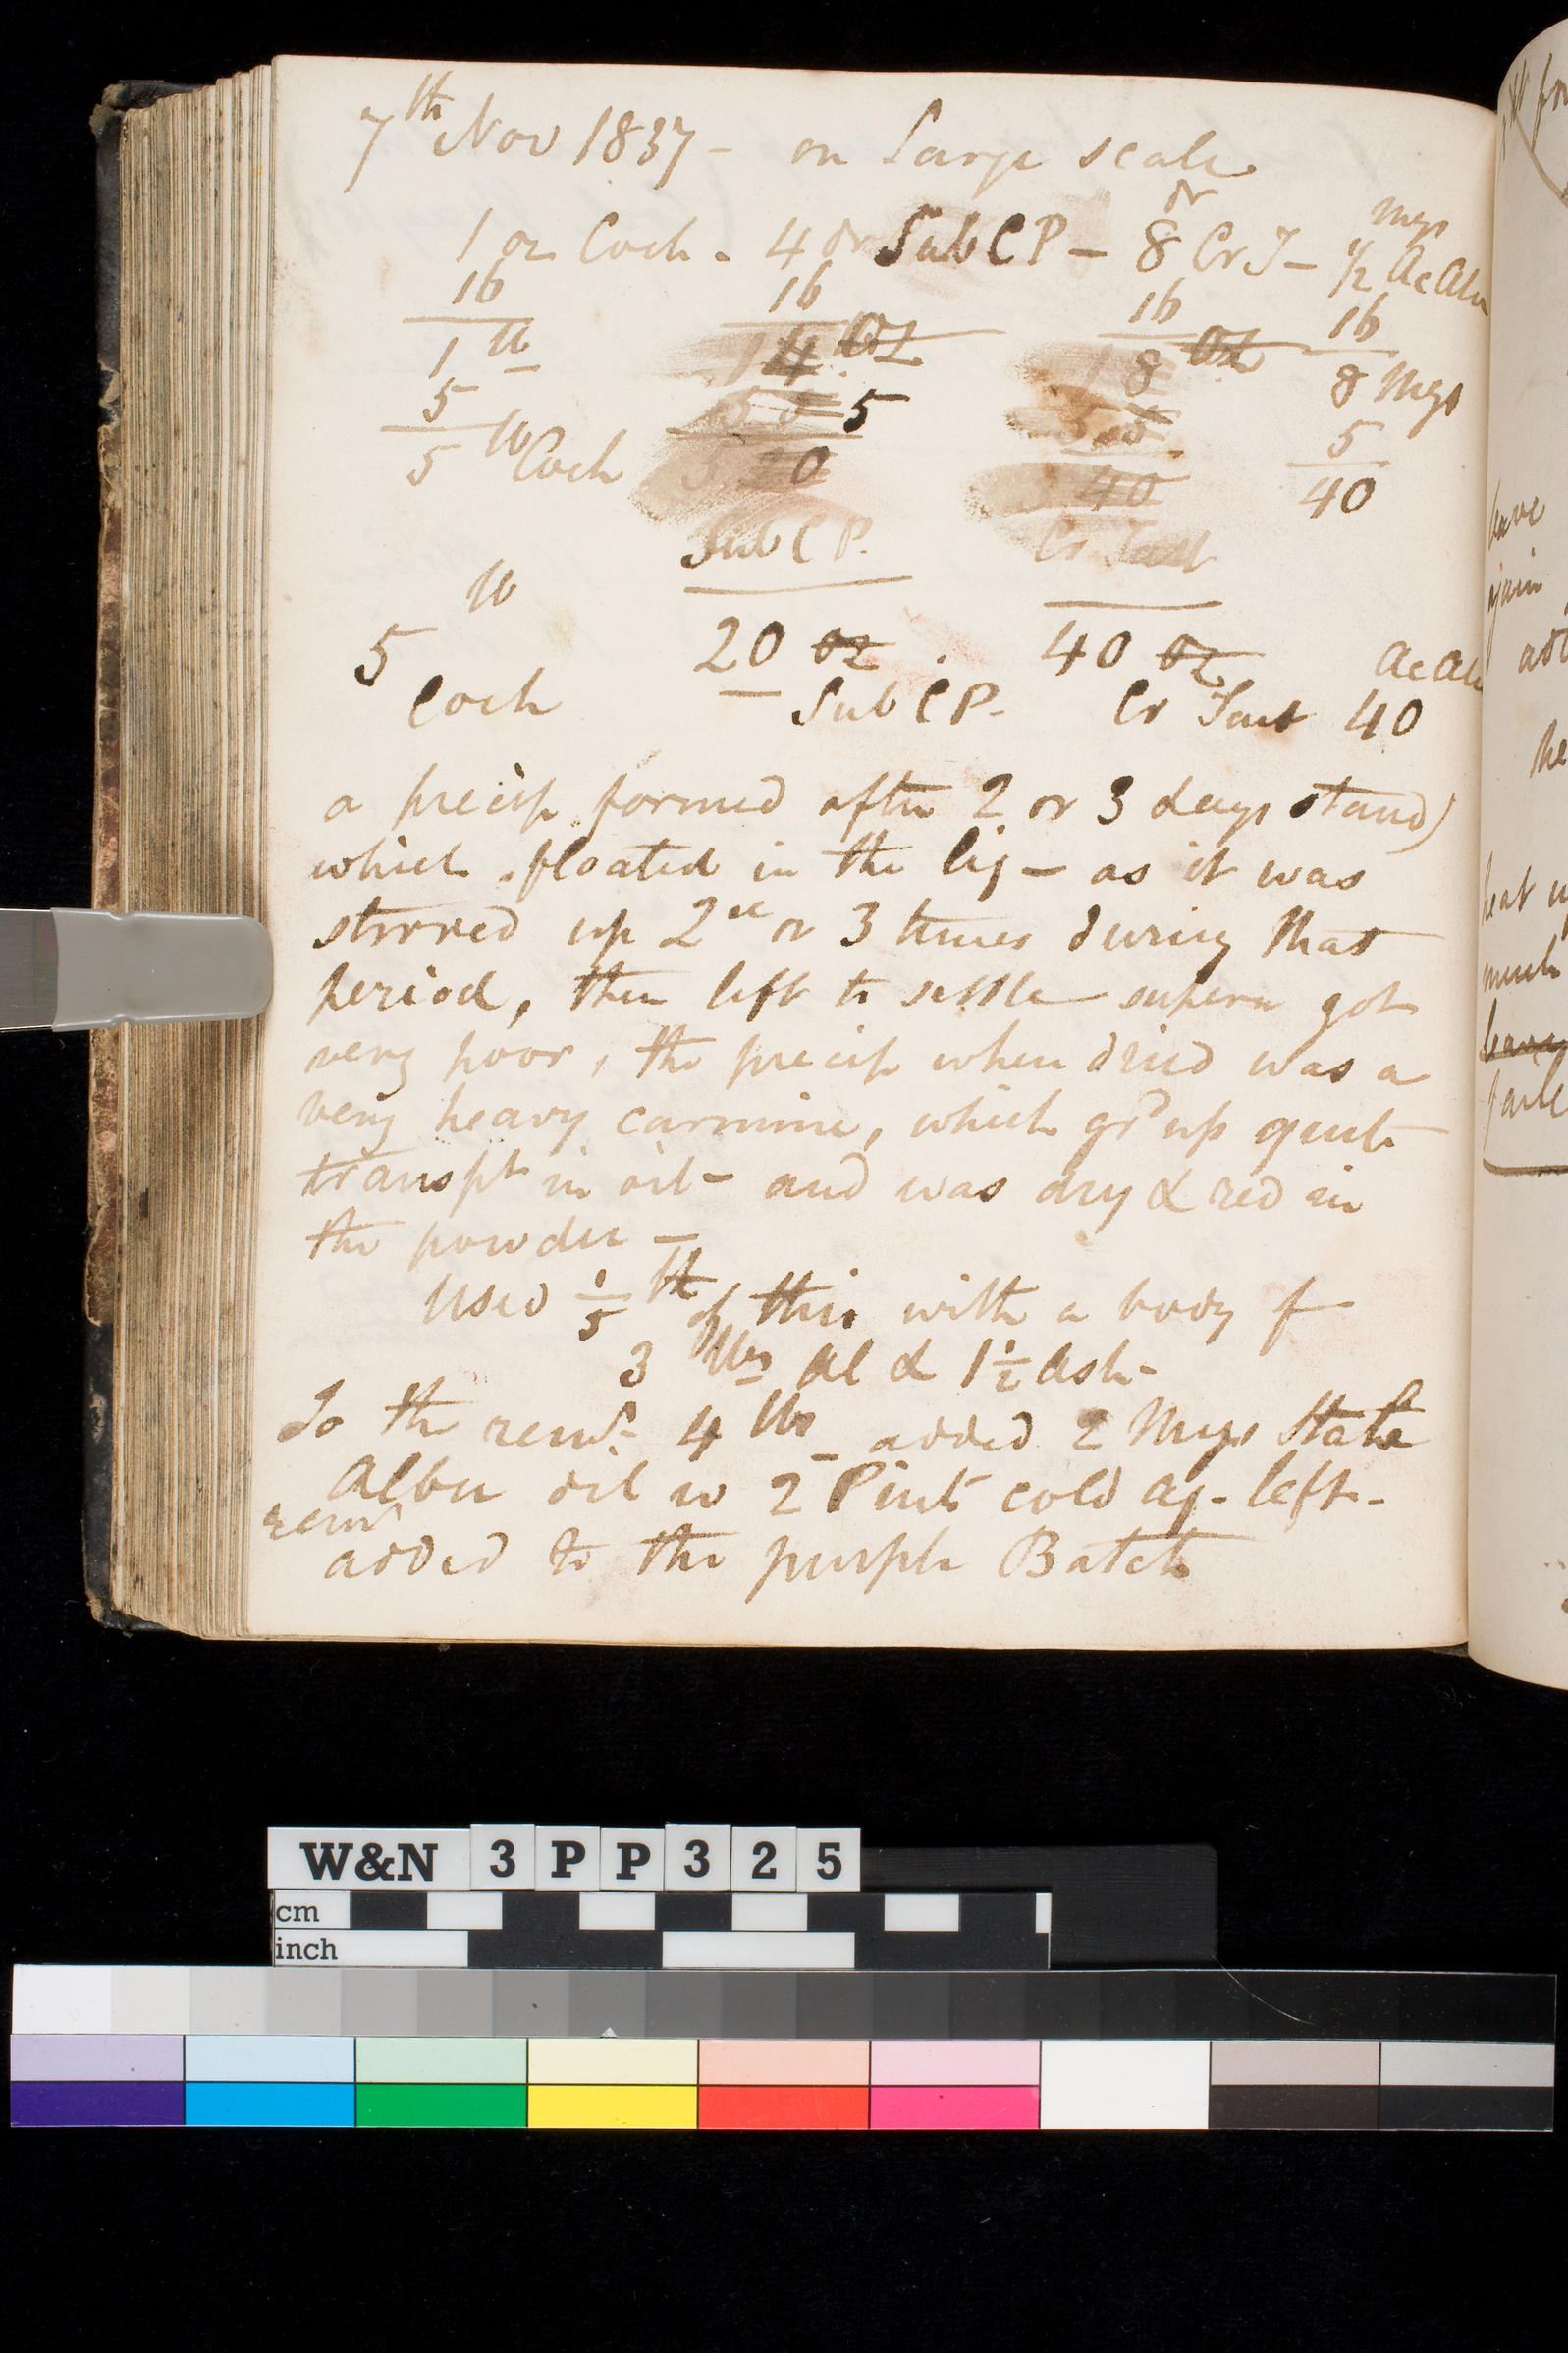 7th Nov 1837 - on Large scale
1 oz Coch. 4 dr Sub C P - 8 dr Cr T - 1/2 Mgs Ac Alu
16 16 16 16
1 lb 4 oz 8 oz 8 Mgs
5 5 5 5 5
5 lb Coch 20 40 40
Sub C P. Cr Tart
5 lb 20 oz. 40 oz Ac Alu
Coch Sub C P. Cr Tart 40
a precip formed after 2 or 3 days stand)
which floated in the liq - as it was
stirred up 2 or 3 times during that
period, then left to settle supern got
very poor, the precip when dried was a
very heavy carmine, which grd up quite
transpt in oil - and was dry & red in
the powder -
Used 1/5 th of this with a body of
3 lbs Al & 1 1/2 Ash -
To the remr 4 lbs added 2 Mugs State
Albu dil w 2 Pints cold aq - left -
remd
added to the purple Batch
have
again
he
heat
much
W&N 3PP325
cm
inch